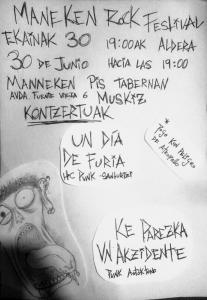 MANEKEN ROCK FESTIVAL
EKAINAK 30 19:00AK ALDERA
30 DE JUNIO HACIA LAS 19:00
MANNEKEN PIS TABERNAN
AVDA FUENTE VIEJA 6 MUSKIZ
KONTZERTUAK
UN DÍA
DE FURIA
HC PUNK - SANTURTZI
KE PAREZKA
UN AKZIDENTE
PUNK